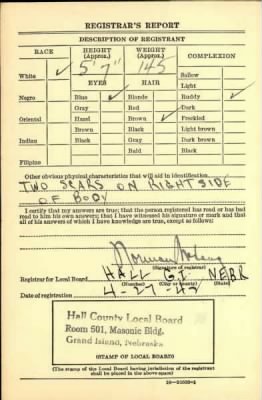 REGISTRAR'S REPORT
DESCRIPTION OF REGISTRANT
RACE HEIGHT (Approx.) WEIGHT (Approx.) COMPLEXION
5'7" 145
White ✓ Sallow
EYES HAIR Light
Negro Blue ✓ Blonde Ruddy ✓
Gray Red Dark
Oriental Hazel Brown ✓ Freckled
Brown Black Light brown
Indian Black Gray Dark brown
Bald Black
Filipino
Other obvious physical characteristics that will aid in identification
TWO SCARS ON RIGHT SIDE
OF BODY
I certify that my answers are true; that the person registered has read or has had
read to him his own answers; that I have witnessed his signature or mark and that
all of his answers of which I have knowledge are true, except as follows:
Norman
(Signature of registrar)
Registrar for Local Board HALL G.I. NEBR
(Number) (City or county) (State)
Date of registration 4-27-42
Hall County Local Board
Room 501, Masonic Bldg.
Grand Island, Nebraska
(STAMP OF LOCAL BOARD)
(The stamp of the Local Board having jurisdiction of the registrant
shall be placed in the above space)